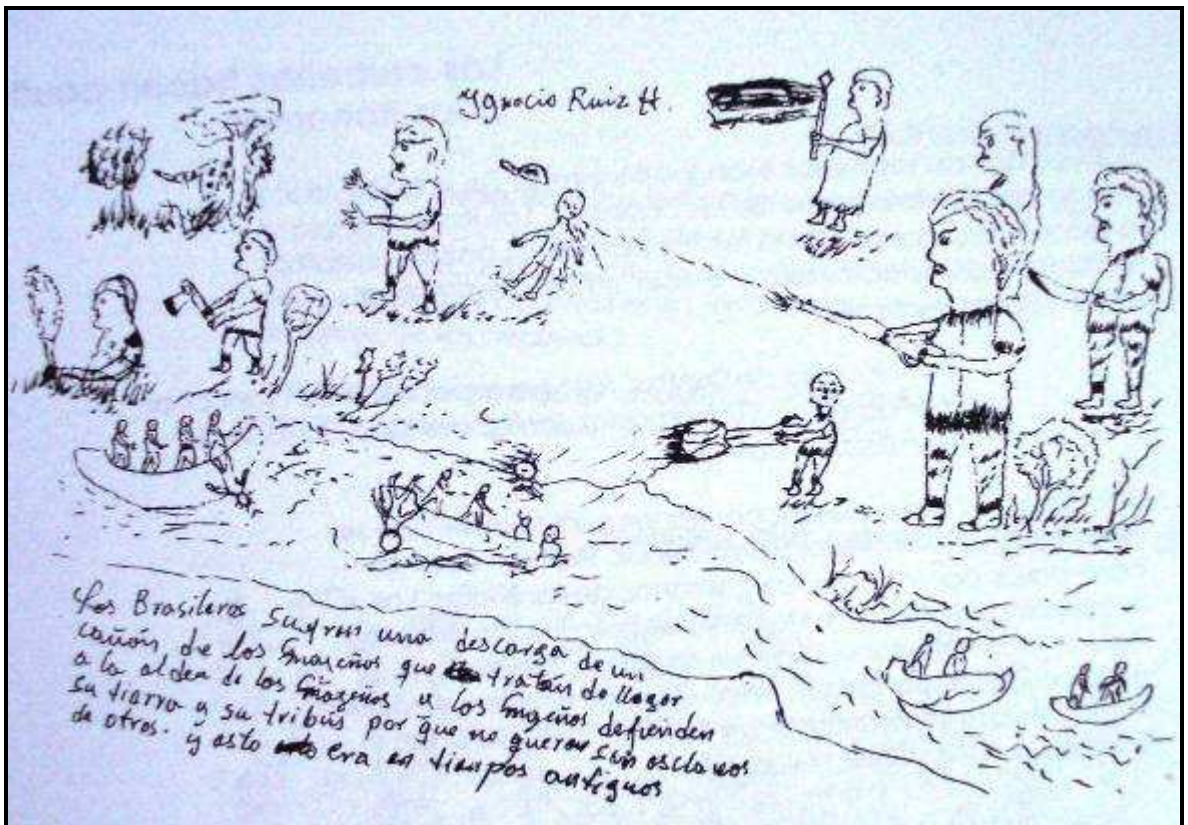 Ygnacio Ruiz H.
Los Brasileros sufren una descarga de un
cañón, de los Emazeños que tratan de llegar
a la aldea de los Emazeños y los Emazeños defienden
su tiarra y su tribus por que no queren sin esclavos
de otros. y esto era en tiempos antiguos